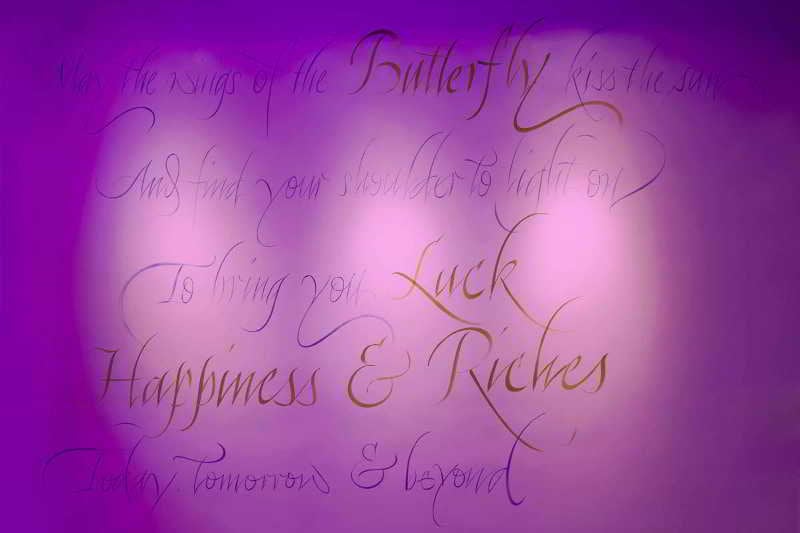 May the wings of the Butterfly kiss the sun
And find your shoulder to light on
To bring you Luck
Happiness & Riches
Today, Tomorrow & beyond